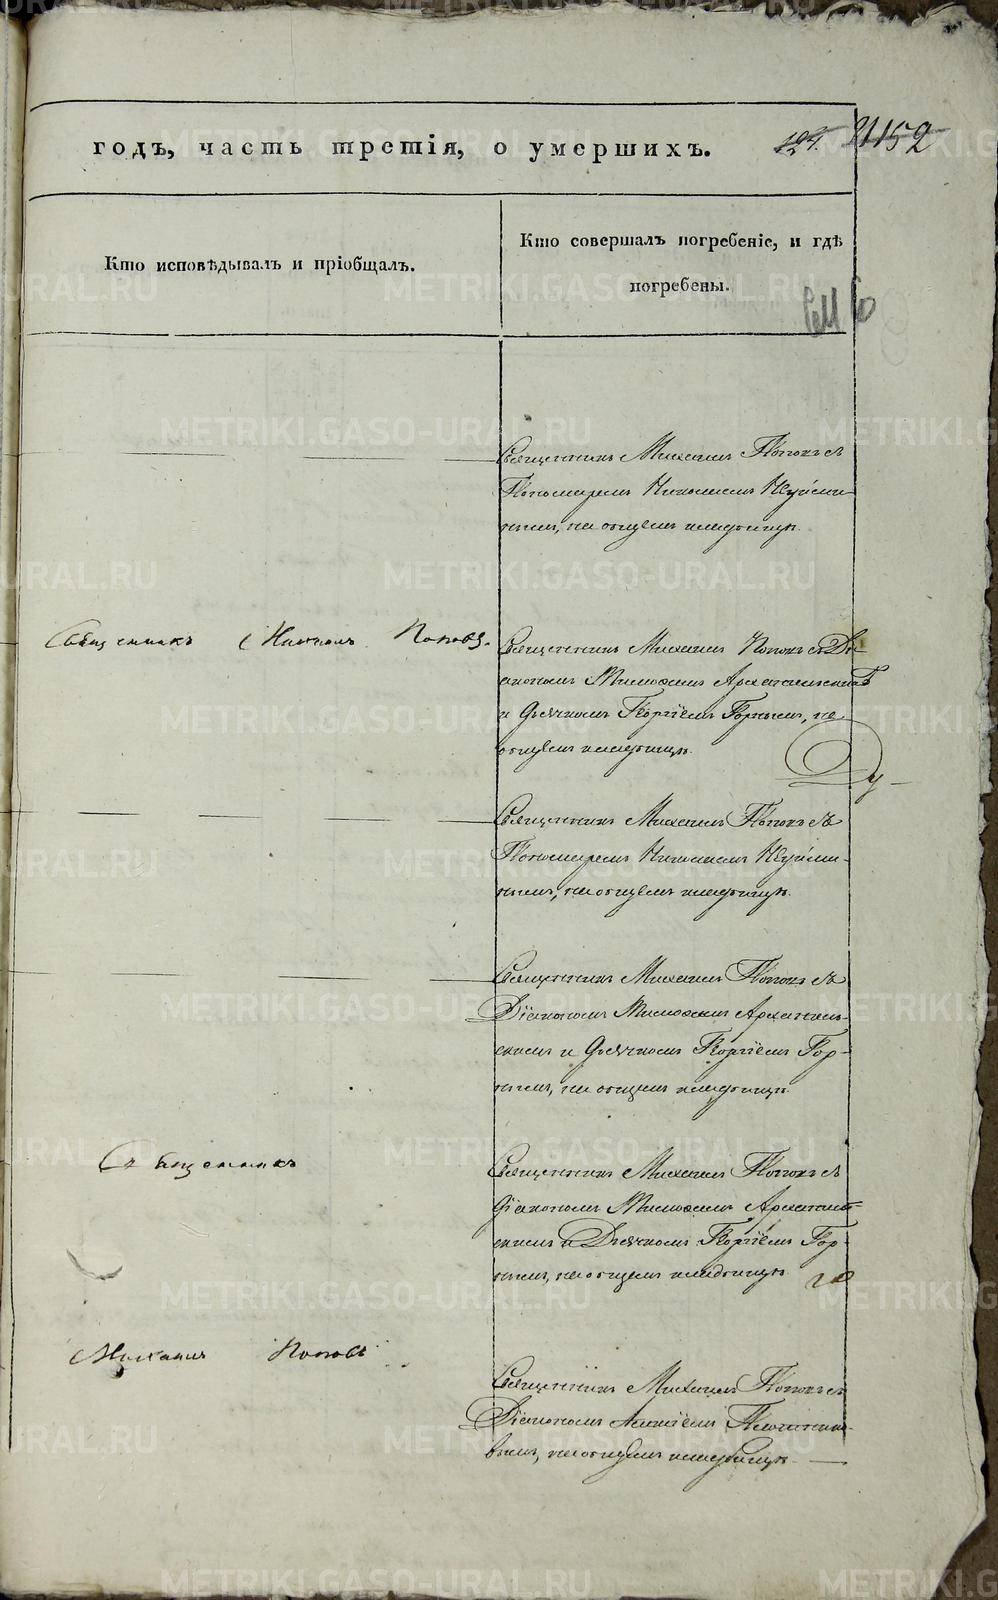 годъ, часть третія, о умершихъ.
152
Кто исповѣдывалъ и пріобщалъ.
Кто совершалъ погребеніе, и гдѣ
погребены.
Священникъ Михаилъ Поповъ съ
Пономаремъ Николаемъ
нымъ, на общемъ кладбищѣ.
Священникъ Михаилъ Поповъ.
Священникъ Михаилъ Поповъ съ Ді
акономъ Архангельскимъ
и Дьячкомъ Георгіемъ Горнымъ, на
общемъ кладбищѣ.
Священникъ Михаилъ Поповъ съ
Пономаремъ Николаемъ
нымъ, на общемъ кладбищѣ.
Священникъ Михаилъ Поповъ съ
Діакономъ Архангель-
скимъ и Дьячкомъ Георгіемъ Гор-
нымъ, на общемъ кладбищѣ.
Священникъ
Священникъ Михаилъ Поповъ съ
Діакономъ Архангель-
скимъ и Дьячкомъ Георгіемъ Гор-
нымъ, на общемъ кладбищѣ
Михаилъ Поповъ
Священникъ Михаилъ Поповъ съ
Діакономъ
вымъ, на общемъ кладбищѣ.
METRIKI.GASO-URAL.RU